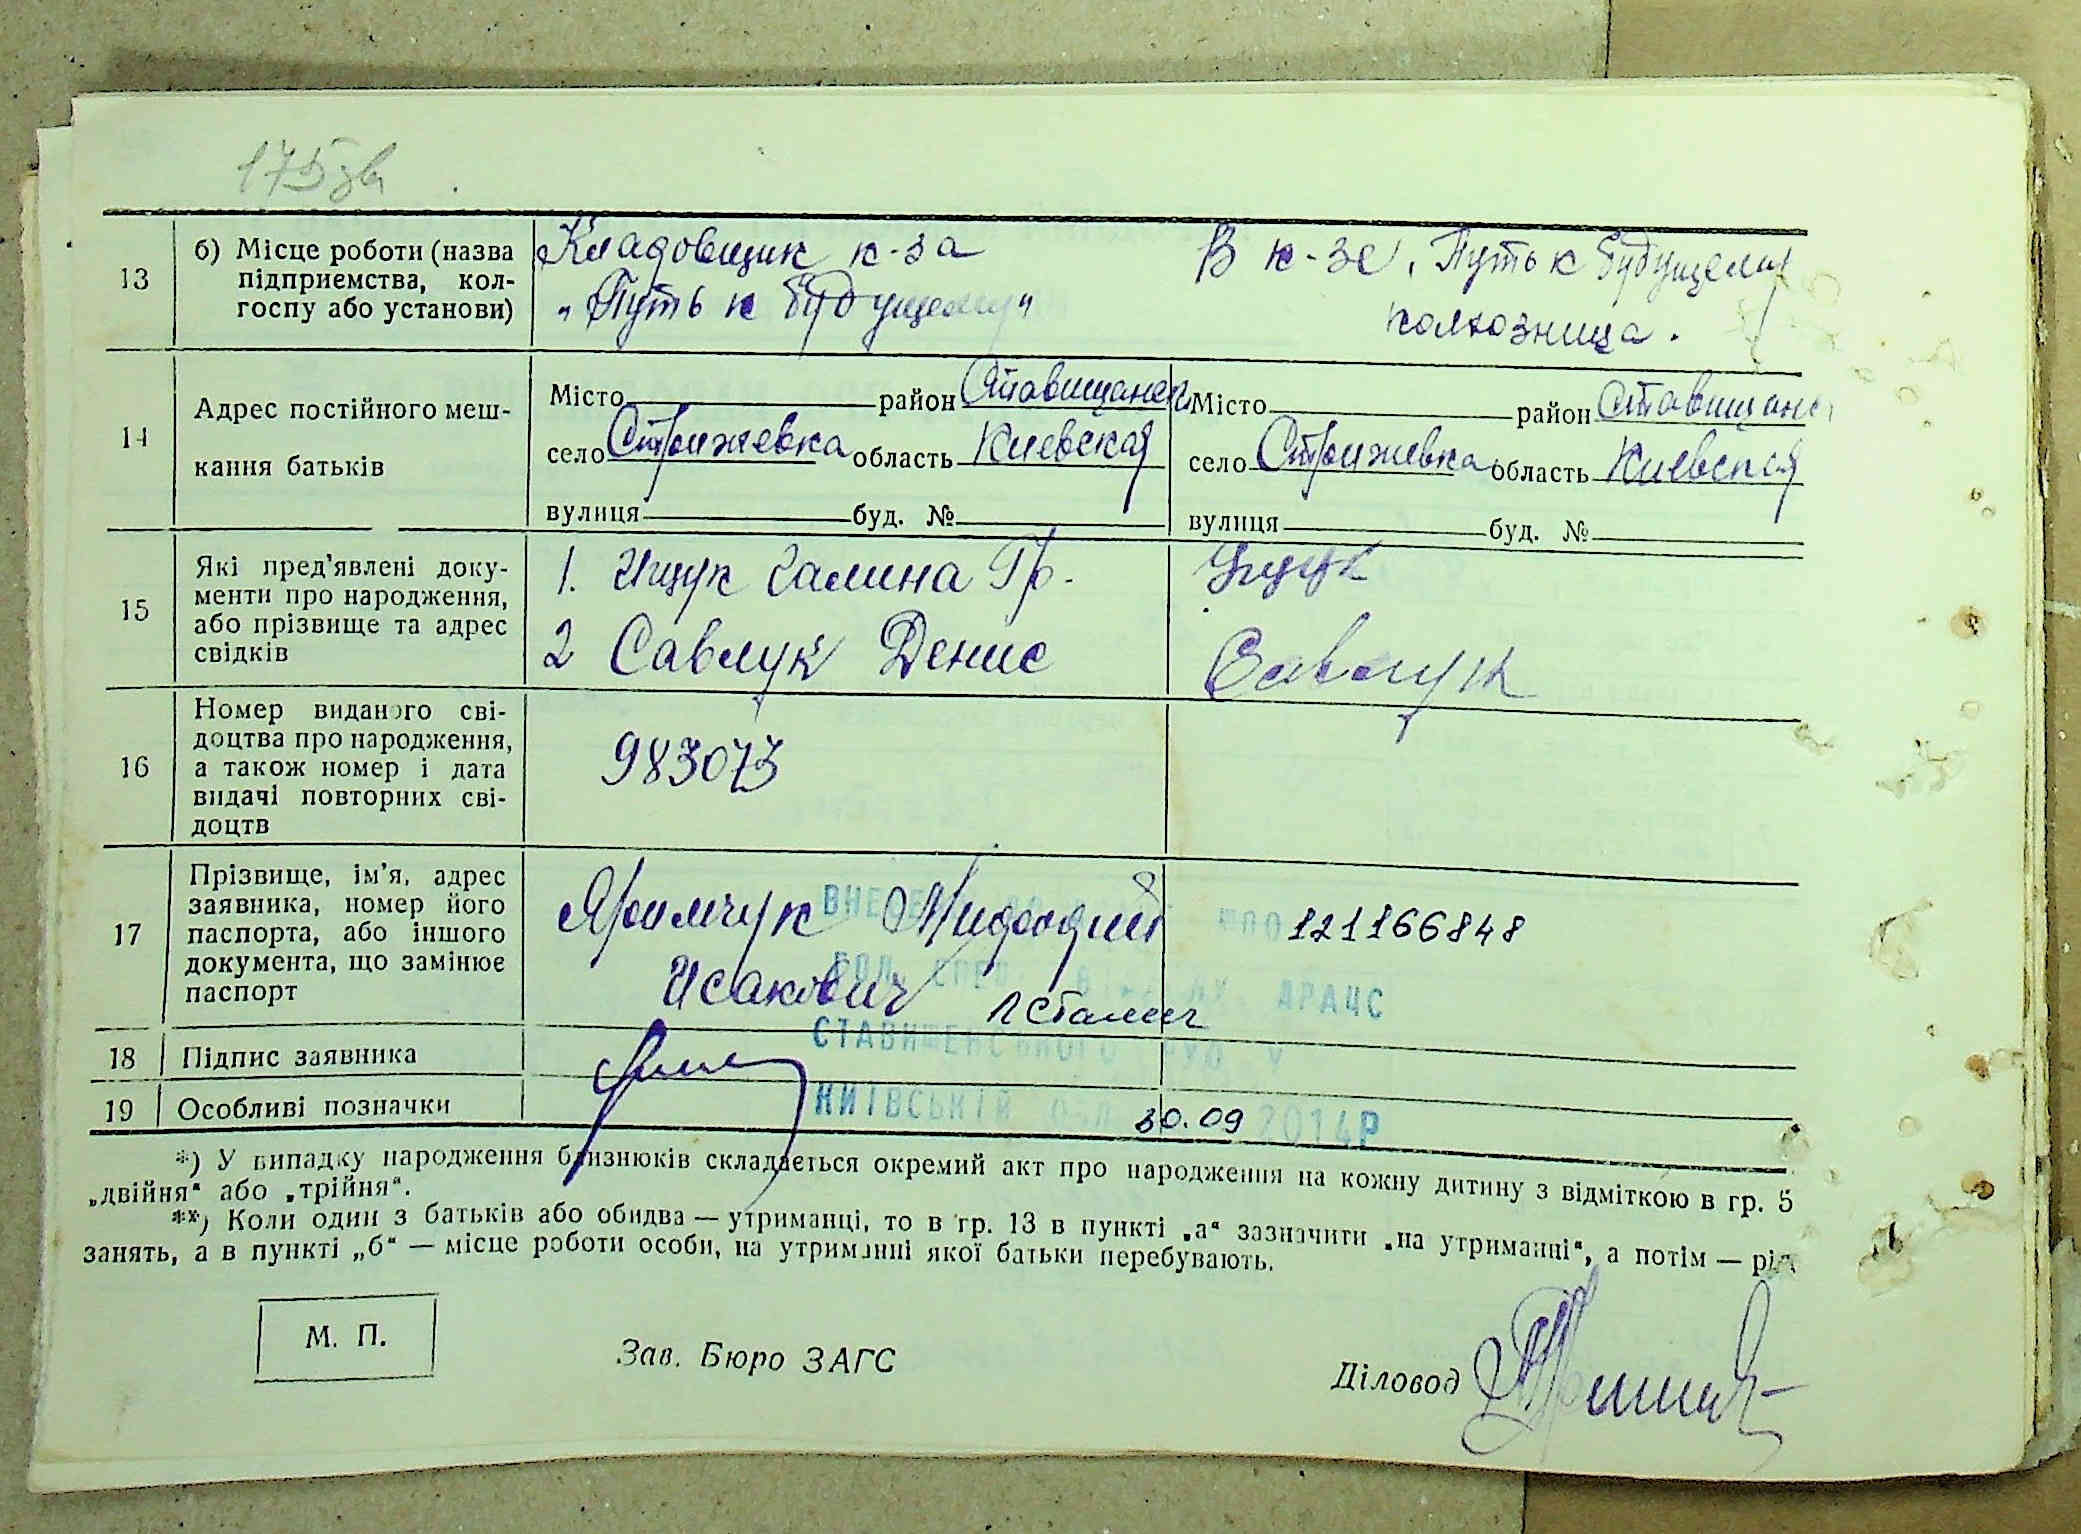 175зв
13
б) Місце роботи (назва
підприемства, кол-
госпу або установи)
Кладовщик к-за
„Путь к будущему"
В к-зе, Путь к будущему
колхозница.
14
Адрес постійного меш-
кання батьків
Місто район Ставищанск
село Стрижевка область Киевская
вулиця буд. №
Місто район Ставищанс
село Стрижевка область Киевская
вулиця буд. №
15
Які пред'явлені доку-
менти про народження,
або прізвище та адрес
свідків
1. Ищук Галина Гр.
2 Савлук Денис
Ищук
Савлук
16
Номер виданого сві-
доцтва про народження,
а також номер і дата
видачі повторних сві-
доцтв
983073
17
Прізвище, ім'я, адрес
заявника, номер його
паспорта, або іншого
документа, що замінює
паспорт
Яримчук
Исакович
121166848
АРАЦС
СТАВИЩЕНСЬКОГО РУЮ У
КИЇВСЬКІЙ ОБЛ 30.09 2014Р
18
Підпис заявника
19
Особливі позначки
*) У випадку народження близнюків складається окремий акт про народження на кожну дитину з відміткою в гр. 5
„двійня" або „трійня".
**) Коли один з батьків або обидва — утриманці, то в гр. 13 в пункті „а" зазначити „на утриманні", а потім — рід
занять, а в пункті „б" — місце роботи особи, на утриманні якої батьки перебувають.
М. П.
Зав. Бюро ЗАГС
Діловод